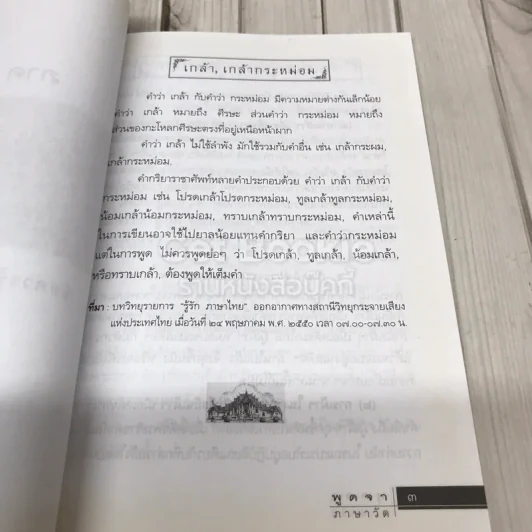 เกล้า, เกล้ากระหม่อม
คำว่า เกล้า กับคำว่า กระหม่อม มีความหมายต่างกันเล็กน้อย
คำว่า เกล้า หมายถึง ศีรษะ ส่วนคำว่า กระหม่อม หมายถึง
ส่วนของกะโหลกศีรษะตรงที่อยู่เหนือหน้าผาก
คำว่า เกล้า ไม่ใช้ลำพัง มักใช้รวมกับคำอื่น เช่น เกล้ากระผม,
เกล้ากระหม่อม.
คำกริยาราชาศัพท์หลายคำประกอบด้วย คำว่า เกล้า กับคำว่า
กระหม่อม เช่น โปรดเกล้าโปรดกระหม่อม, ทูลเกล้าทูลกระหม่อม,
น้อมเกล้าน้อมกระหม่อม, ทราบเกล้าทราบกระหม่อม, คำเหล่านี้
ในการเขียนอาจใช้ไปยาลน้อยแทนคำกริยา และคำว่ากระหม่อม
แต่ในการพูด ไม่ควรพูดย่อๆ ว่า โปรดเกล้า, ทูลเกล้า, น้อมเกล้า,
หรือทราบเกล้า, ต้องพูดให้เต็มคำ
ร้านหนังสือบุ๊คกี้
ที่มา : บทวิทยุรายการ "รู้รัก ภาษาไทย" ออกอากาศทางสถานีวิทยุกระจายเสียง
แห่งประเทศไทย เมื่อวันที่ ๒๔ พฤษภาคม พ.ศ. ๒๕๕๐ เวลา ๐๗.๐๐-๐๗.๓๐ น.
พูดจา
ภาษาวัด
๓